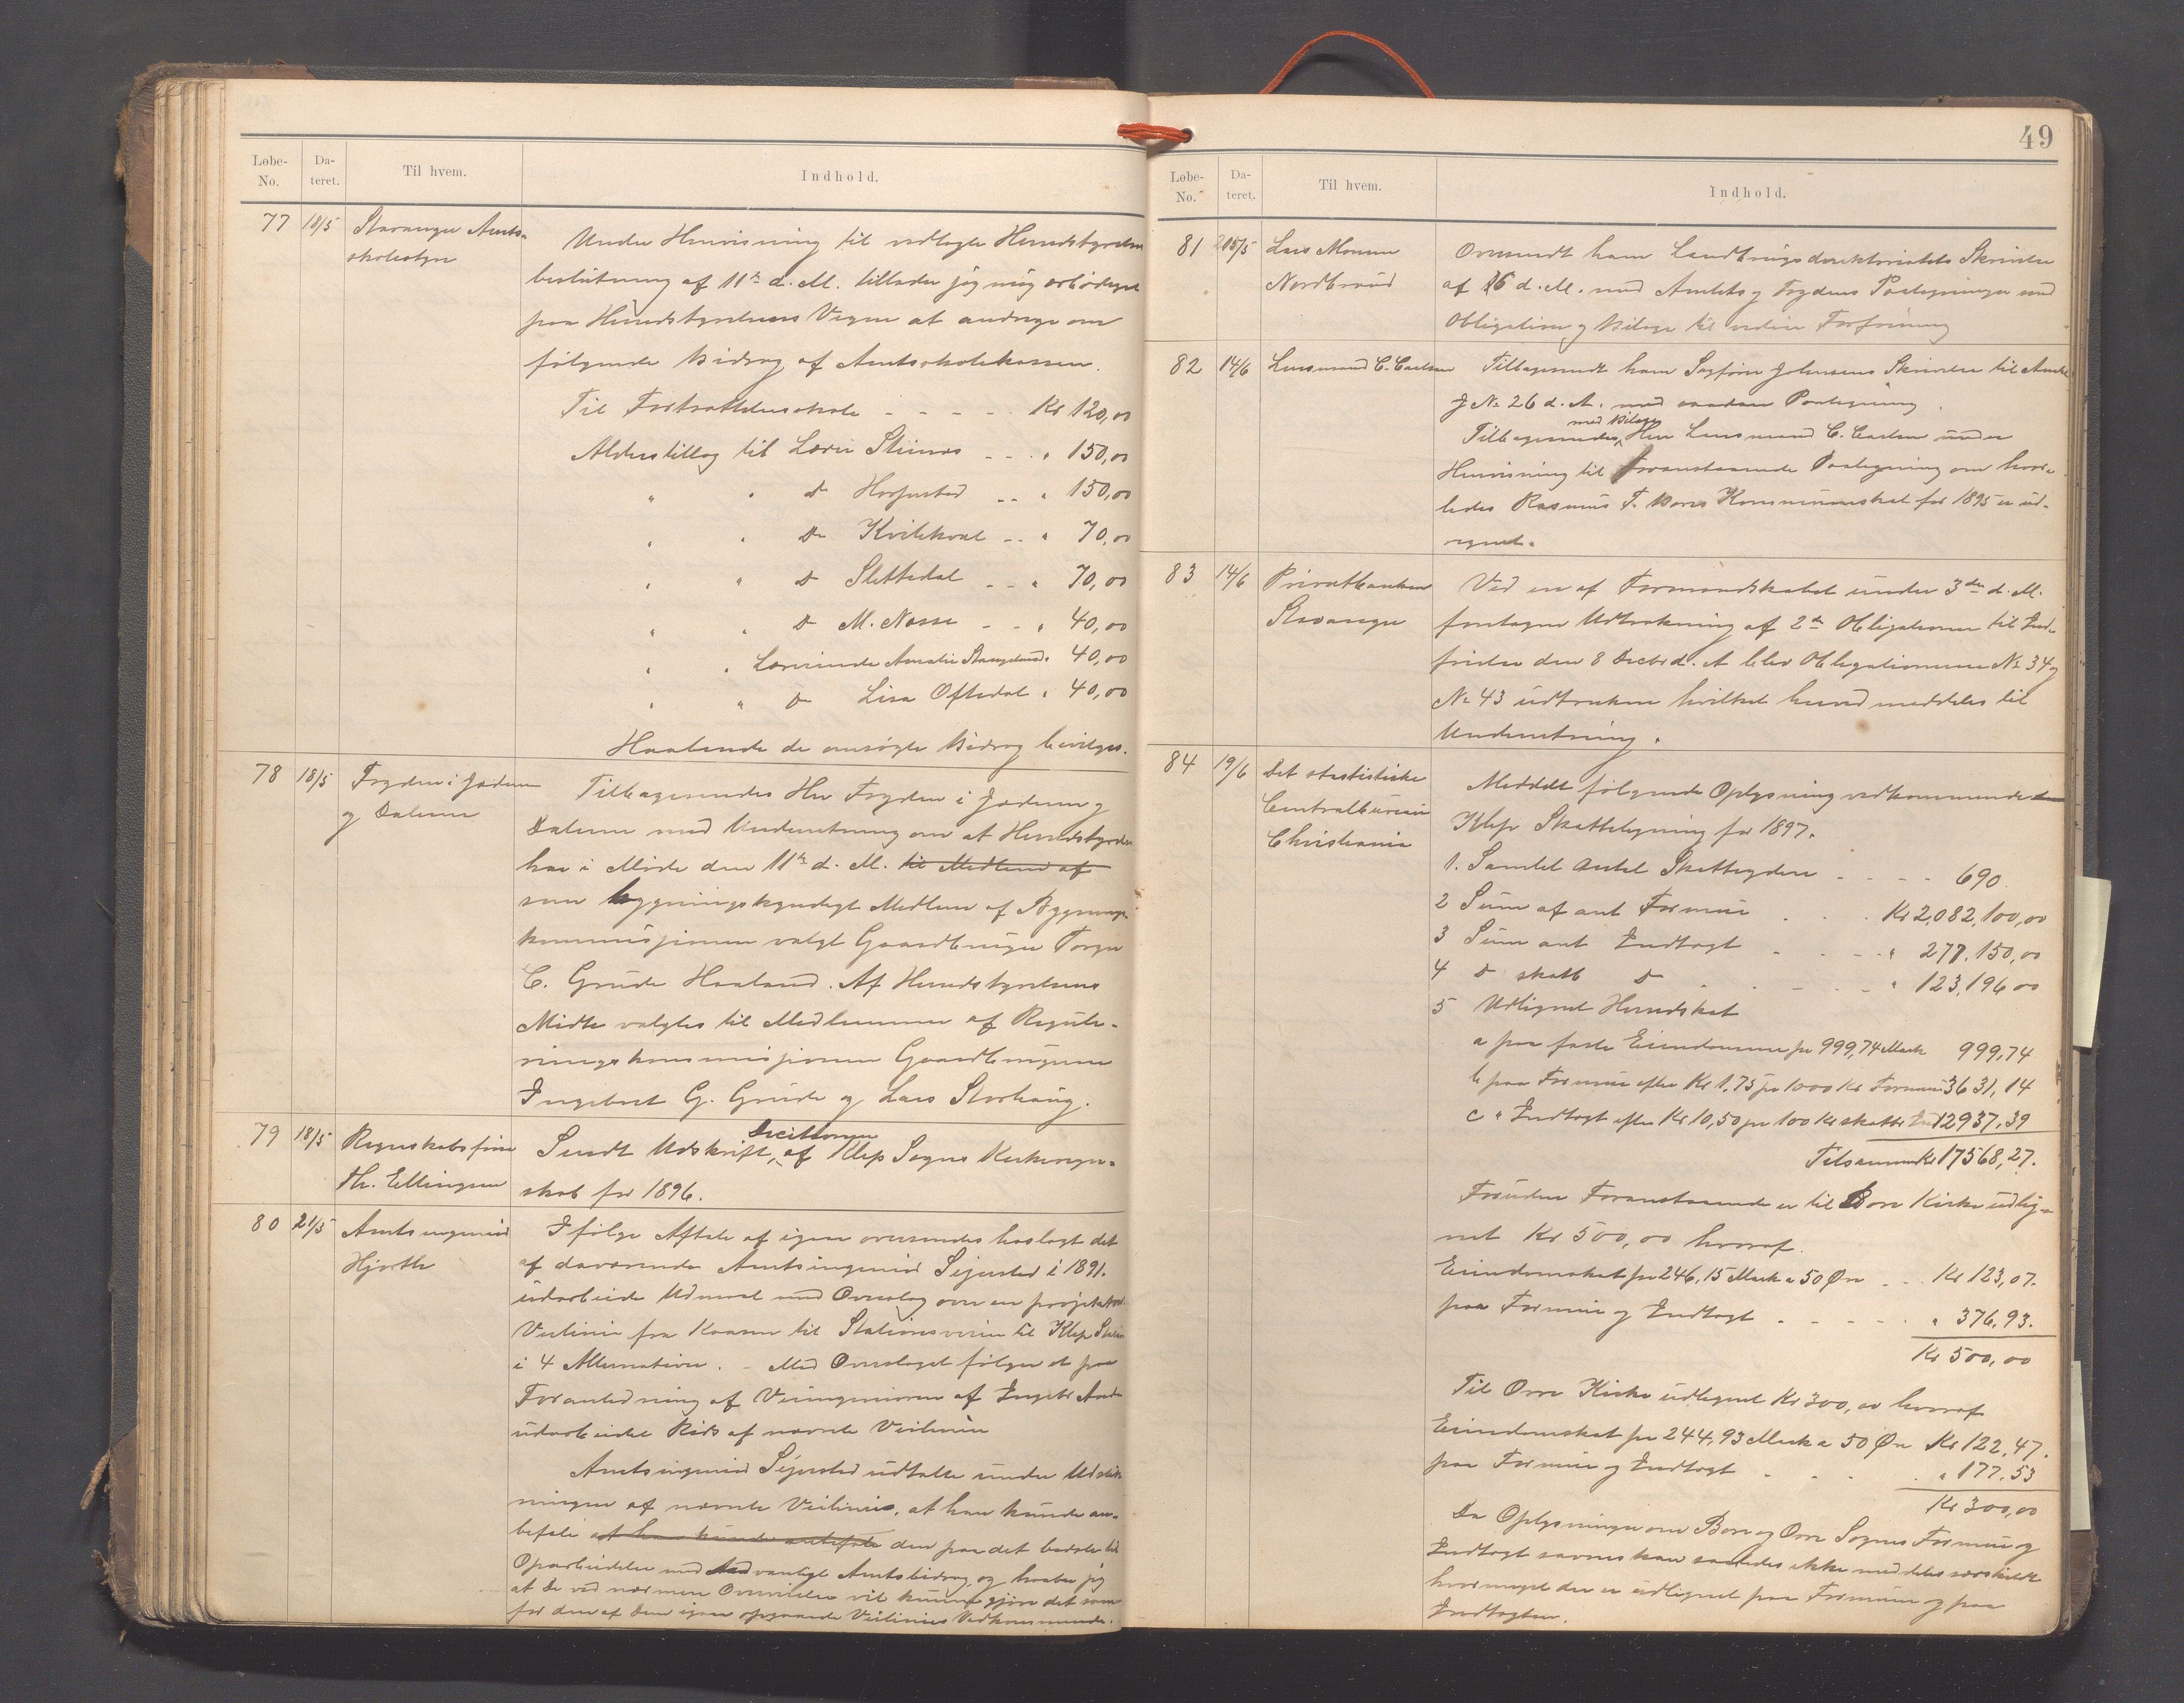 Løbe-No. Da-teret. Til hvem. Indhold.
77 18/5 Stavanger Amts-
skolestyre
Under Henvisning til vedlagte Herredsstyrelses
beslutning af 11te d. M. tillader jeg mig ærbødigst
paa Herredsstyrelsens Vegne at andrage om
følgende Bidrag af Amtsskolekassen.
Til Fortsættelsesskole - - - - Kr 120,00
Alderstillæg til Lærer Stiinæs - - - " 150,00
" " Do Horpestad - - " 150,00
" " Do Kvilekval - - " 70,00
" " Do Slettedal - - " 70,00
" " Do M. Næsse - - " 40,00
" " Lærerinde Amalie Stangeland " 40,00
" " Do Lisa Oftedal " 40,00
Haabende de ansøgte Bidrag bevilges.
78 18/5 Fogden i Jæderen
og Dalerne
Tilbagesendes Hr Fogden i Jæderen og
Dalerne med Underretning om at Herredsstyrelsen
har i Møde den 11te d. M. til Medlem af
som bygningskyndigt Medlem af Bygnings-
kommissjonen valgt Gaardbruger Torger
C. Grude Haaland. Af Herredsstyrelsens
Midte valgtes til Medlemmer af Regule-
ringskommissjonen Gaardbrugerne
Ingebret G. Grude og Lars Storhaug.
79 18/5 Regnskabsfører
Th. Ellingsen
Sendt Udskrift, Decisionen af Klep Sogns Kirkeregn-
skab for 1896.
80 21/5 Amtsingeniør
Hjorth
Ifølge Aftale af igaar oversendes hoslagt det
af daværende Amtsingeniør Sejersted i 1891.
udarbeide Udmaal med Overslag over en projekteret
Veilinie fra Kaasen til Stationsveien til Klep Station
i 4 Alternativer. - Med Overslaget følger et paa
Foranledning af Veiingeniøren af Ingebr
udarbeidet Rids af nævnte Veilinie
Amtsingeniør Sejersted udtalte under Udstik-
ningen af nævnte Veilinie, at han kunde an-
befale at han kunde anbefale den paa det bedste til
Oparbeidelse med sedvanligt Amtsbidrag, og haaber jeg
at De ved nærmere Overveielse vil kunne gjøre det samme
for den af Dem igaar opgaaede Veilinies Vedkommende.
49
Løbe-No. Da-teret. Til hvem. Indhold.
81 25/5 Lars Monsen
Nordbraud
Oversendt ham Landbrugsdirektoriatets Skrivelse
af 16 d. M. med Amtets og Fogdens Paategninger med
Obligation og Bilage til videre Forføining
82 14/6 Lensmand C. Carlsen
Tilbagesendt ham Sagfører Johnsens Skrivelse til Amtet
J No 26 d. A. med saadan Paategning.
Tilbagesendes med Bilage Herr Lensmand C. Carlsen under
Henvisning til foranstaaende Paategning om hvor-
ledes Rasmus T. Bores Kommuneskat for 1895 er ud-
regnet.
83 14/6 Privatbanken
Stavanger
Ved en af Formandskabet under 3die d. M.
foretagen Udtrækning af 2de Obligationer til Ind-
frielse den 8 Decbr d. A blev Obligationerne No 34 og
No 43 udtrukne hvilket herved meddeles til
Underretning.
84 19/6 Det statistiske
Centralbureau
Christiania
Meddelt følgende Oplysning vedkommende
Klep Skatteligning for 1897.
1. Samlet Antal Skatteydere - - - - 690.
2 Sum af ant Formue - - - Kr 2,082,100,00
3 Sum ant Indtægt - - - " 277.150,00
4 Do skatb Do - - - " 123,196 00
5 Udlignet Herredskat
a paa faste Eiendomme pr 999,74 Mark 999,74
b paa Formue efter Kr 1,75 pr 1000 Kr Formue 3631,14
c " Indtægt efter Kr 10,50 pr 100 Kr skattb Ind 12937,39
Tilsammen Kr 17568,27.
Foruden Foranstaaende er til Bore Kirke udlig-
net Kr 500,00 hvoraf.
Eiendomsskat pr 246,15 Mark a 50 Øre - - Kr 123,07.
paa Formue og Indtægt - - - - " 376,93.
Kr 500,00
Til Orre Kirke udlignet Kr 300,00 hvoraf
Eiendomsskat pr 244,93 Mark a 50 Øre Kr 122,47.
paa Formue og Indtægt - - - " 177,53
Kr 300,00
Da Oplysninger om Bore og Orre Sognes Formue og
Indtægt savnes kan saaledes ikke meddeles særskilt
hvormeget der er udlignet paa Formue og paa
Indtægten.